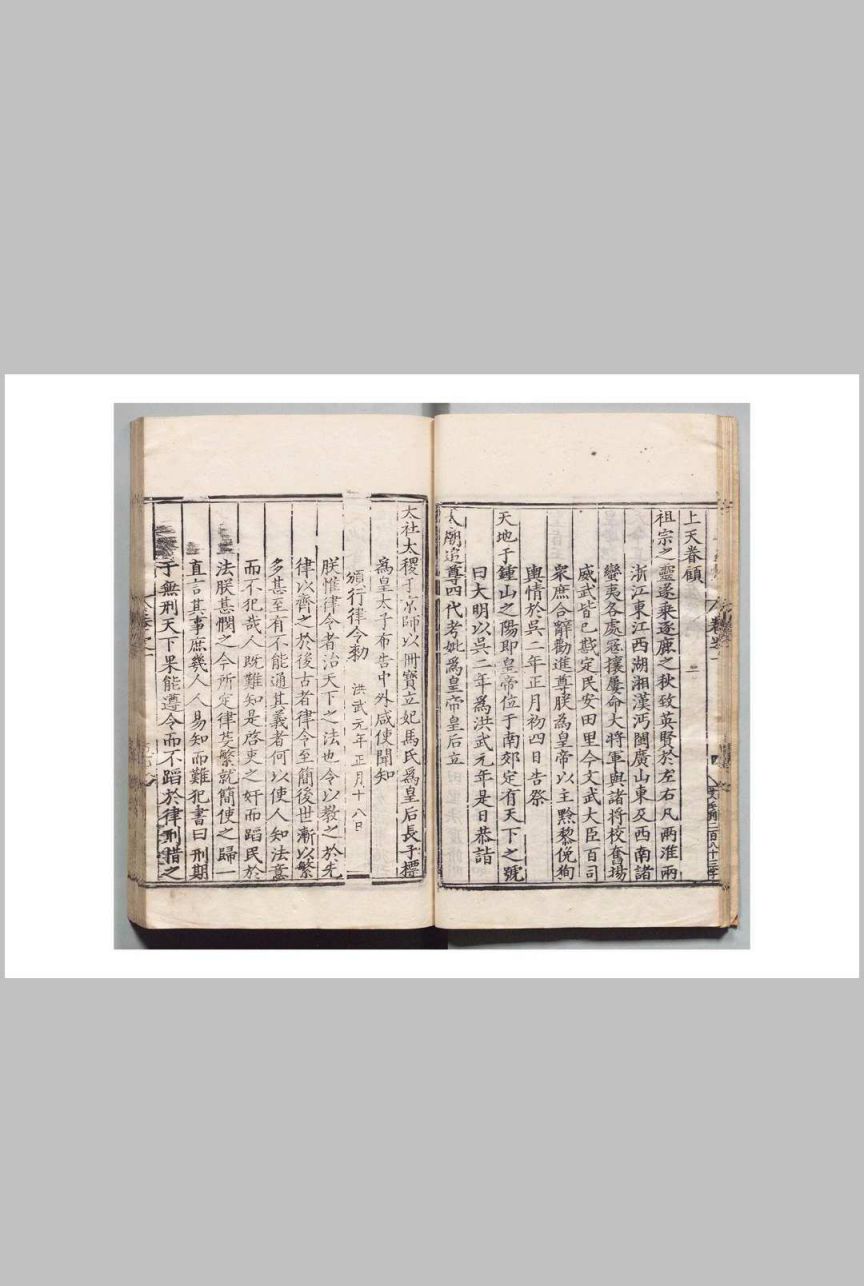 上天眷顧
祖宗之靈遂乘逐鹿之秋致英賢於左右凡兩淮兩
浙江東江西湖湘漢沔閩廣山東及西南諸
蠻夷各處寇攘屢命大將軍與諸將校奮揚
威武皆已戡定民安田里今文武大臣百司
衆庶合辭勸進尊朕為皇帝以主黔黎俛徇
輿情於吳二年正月初四日告祭
天地于鍾山之陽即皇帝位于南郊定有天下之號
曰大明以吳二年為洪武元年是日恭詣
太廟追尊四代考妣為皇帝皇后立
太社太稷于京師以冊寶立妃馬氏為皇后長子標
為皇太子布告中外咸使聞知
頒行律令勑 洪武元年正月十八日
朕惟律令者治天下之法也令以教之於先
律以齊之於後古者律令至簡後世漸以繁
多甚至有不能通其義者何以使人知法意
而不犯哉人既難知是啓吏之奸而蹈民於
法朕甚憫之今所定律芟繁就簡使之歸一
直言其事庶幾人人易知而難犯書曰刑期
于無刑天下果能遵令而不蹈於律刑措之